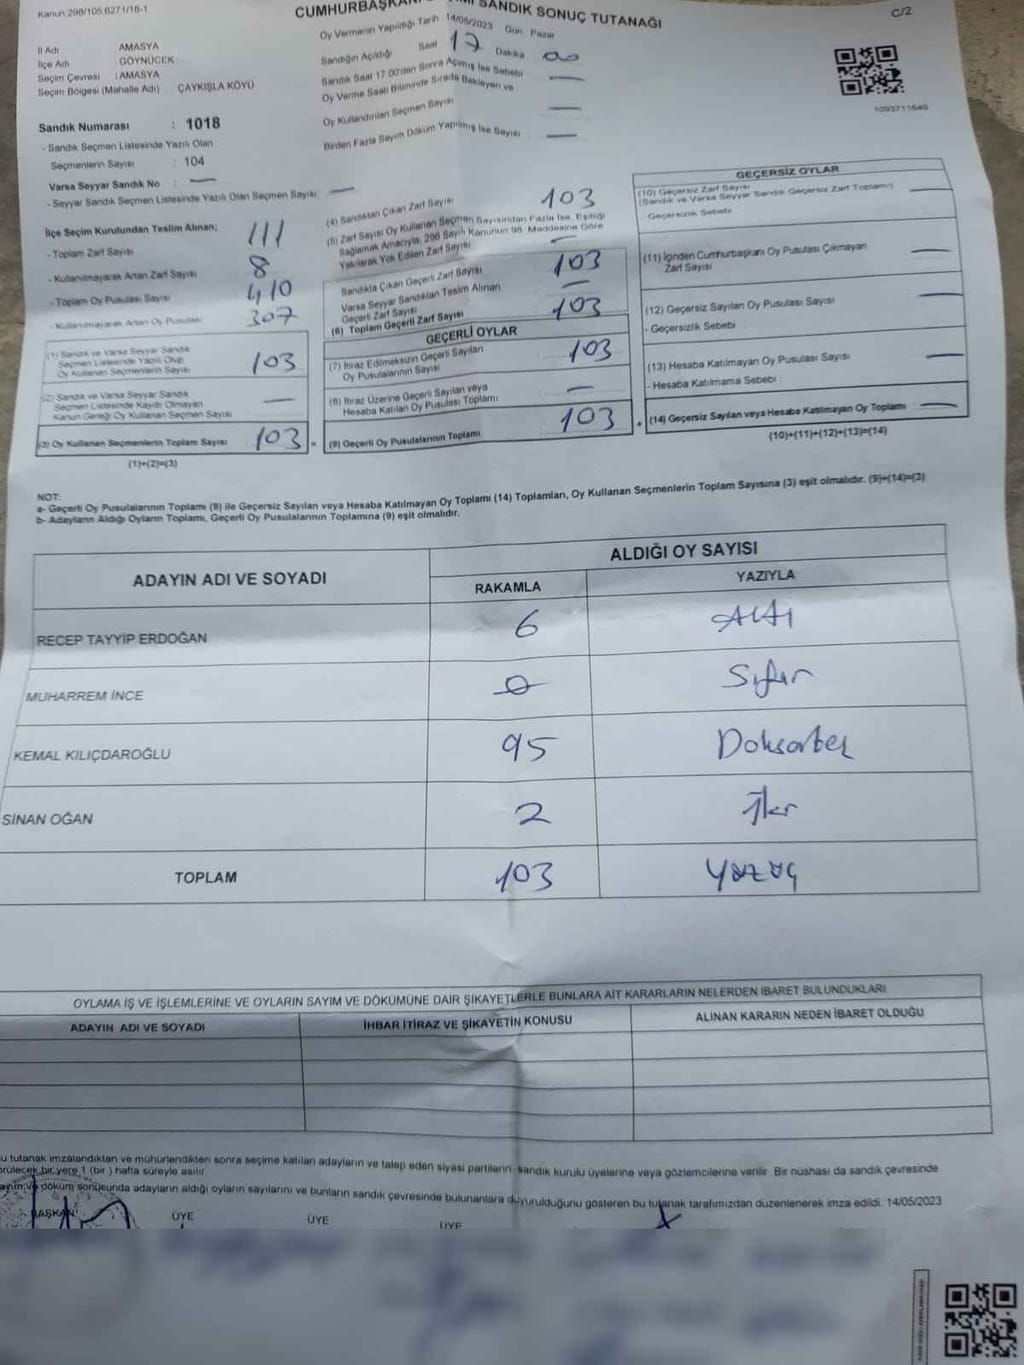 Kanun 298/105,6271/18-1
SANDIK SONUÇ TUTANAĞI
C/2
Oy Vermenin Yapıldığı Tarih 14/05/2023 Gün Pazar
İl Adı AMASYA
İlçe Adı GÖYNÜCEK
Seçim Çevresi : AMASYA
Seçim Bölgesi (Mahalle Adı) ÇAYKIŞLA KÖYÜ
Sandığın Açıldığı Saat 17 Dakika 00
Sandık Saat 17 00'den Sonra Açılmış İse Sebebi —
Oy Verme Saati Bitiminde Sırada Bekleyen ve
Oy Kullandırılan Seçmen Sayısı —
Birden Fazla Sayım Döküm Yapılmış İse Sayısı —
1093711649
Sandık Numarası : 1018
- Sandık Seçmen Listesinde Yazılı Olan
Seçmenlerin Sayısı : 104
Varsa Seyyar Sandık No : —
- Seyyar Sandık Seçmen Listesinde Yazılı Olan Seçmen Sayısı: —
İlçe Seçim Kurulundan Teslim Alınan;
- Toplam Zarf Sayısı 111
- Kullanılmayarak Artan Zarf Sayısı 8
- Toplam Oy Pusulası Sayısı 410
- Kullanılmayarak Artan Oy Pusulası 307
(1) Sandık ve Varsa Seyyar Sandık
Seçmen Listesinde Yazılı Olup
Oy Kullanan Seçmenlerin Sayısı 103
(2) Sandık ve Varsa Seyyar Sandık
Seçmen Listesinde Kayıtlı Olmayan
Kanun Gereği Oy Kullanan Seçmen Sayısı —
(3) Oy Kullanan Seçmenlerin Toplam Sayısı 103 =
(1)+(2)=(3)
(4) Sandıktan Çıkan Zarf Sayısı 103
(5) Zarf Sayısı Oy Kullanan Seçmen Sayısından Fazla İse, Eşitliği
Sağlamak Amacıyla, 298 Sayılı Kanunun 98. Maddesine Göre
Yakılarak Yok Edilen Zarf Sayısı —
Sandıkta Çıkan Geçerli Zarf Sayısı 103
Varsa Seyyar Sandıktan Teslim Alınan
Geçerli Zarf Sayısı —
(6) Toplam Geçerli Zarf Sayısı 103
GEÇERLİ OYLAR
(7) İtiraz Edilmeksizin Geçerli Sayılan
Oy Pusulalarının Sayısı 103
(8) İtiraz Üzerine Geçerli Sayılan veya
Hesaba Katılan Oy Pusulası Toplamı —
(9) Geçerli Oy Pusulalarının Toplamı 103 +
GEÇERSİZ OYLAR
(10) Geçersiz Zarf Sayısı
(Sandık ve Varsa Seyyar Sandık Geçersiz Zarf Toplamı) —
- Geçersizlik Sebebi
(11) İçinden Cumhurbaşkanı Oy Pusulası Çıkmayan
Zarf Sayısı —
(12) Geçersiz Sayılan Oy Pusulası Sayısı —
- Geçersizlik Sebebi
(13) Hesaba Katılmayan Oy Pusulası Sayısı —
- Hesaba Katılmama Sebebi
(14) Geçersiz Sayılan veya Hesaba Katılmayan Oy Toplamı —
(10)+(11)+(12)+(13)=(14)
NOT:
a- Geçerli Oy Pusulalarının Toplamı (9) ile Geçersiz Sayılan veya Hesaba Katılmayan Oy Toplamı (14) Toplamları, Oy Kullanan Seçmenlerin Toplam Sayısına (3) eşit olmalıdır. (9)+(14)=(3)
b- Adayların Aldığı Oyların Toplamı, Geçerli Oy Pusulalarının Toplamına (9) eşit olmalıdır.
ADAYIN ADI VE SOYADI ALDIĞI OY SAYISI
RAKAMLA YAZIYLA
RECEP TAYYİP ERDOĞAN 6 Altı
MUHARREM İNCE 0 Sıfır
KEMAL KILIÇDAROĞLU 95 Doksanbeş
SİNAN OĞAN 2 İki
TOPLAM 103 Yüzüç
OYLAMA İŞ VE İŞLEMLERİNE VE OYLARIN SAYIM VE DÖKÜMÜNE DAİR ŞİKAYETLERLE BUNLARA AİT KARARLARIN NELERDEN İBARET BULUNDUKLARI
ADAYIN ADI VE SOYADI İHBAR İTİRAZ VE ŞİKAYETİN KONUSU ALINAN KARARIN NEDEN İBARET OLDUĞU
u tutanak imzalandıktan ve mühürlendikten sonra seçime katılan adayların ve talep eden siyasi partilerin, sandık kurulu üyelerine veya gözlemcilerine verilir. Bir nüshası da sandık çevresinde
örülecek bir yere 1 (bir ) hafta süreyle asılır.
ayım ve döküm sonucunda adayların aldığı oyların sayılarını ve bunların sandık çevresinde bulunanlara duyurulduğunu gösteren bu tutanak tarafımızdan düzenlenerek imza edildi. 14/05/2023
BAŞKAN ÜYE ÜYE ÜYE